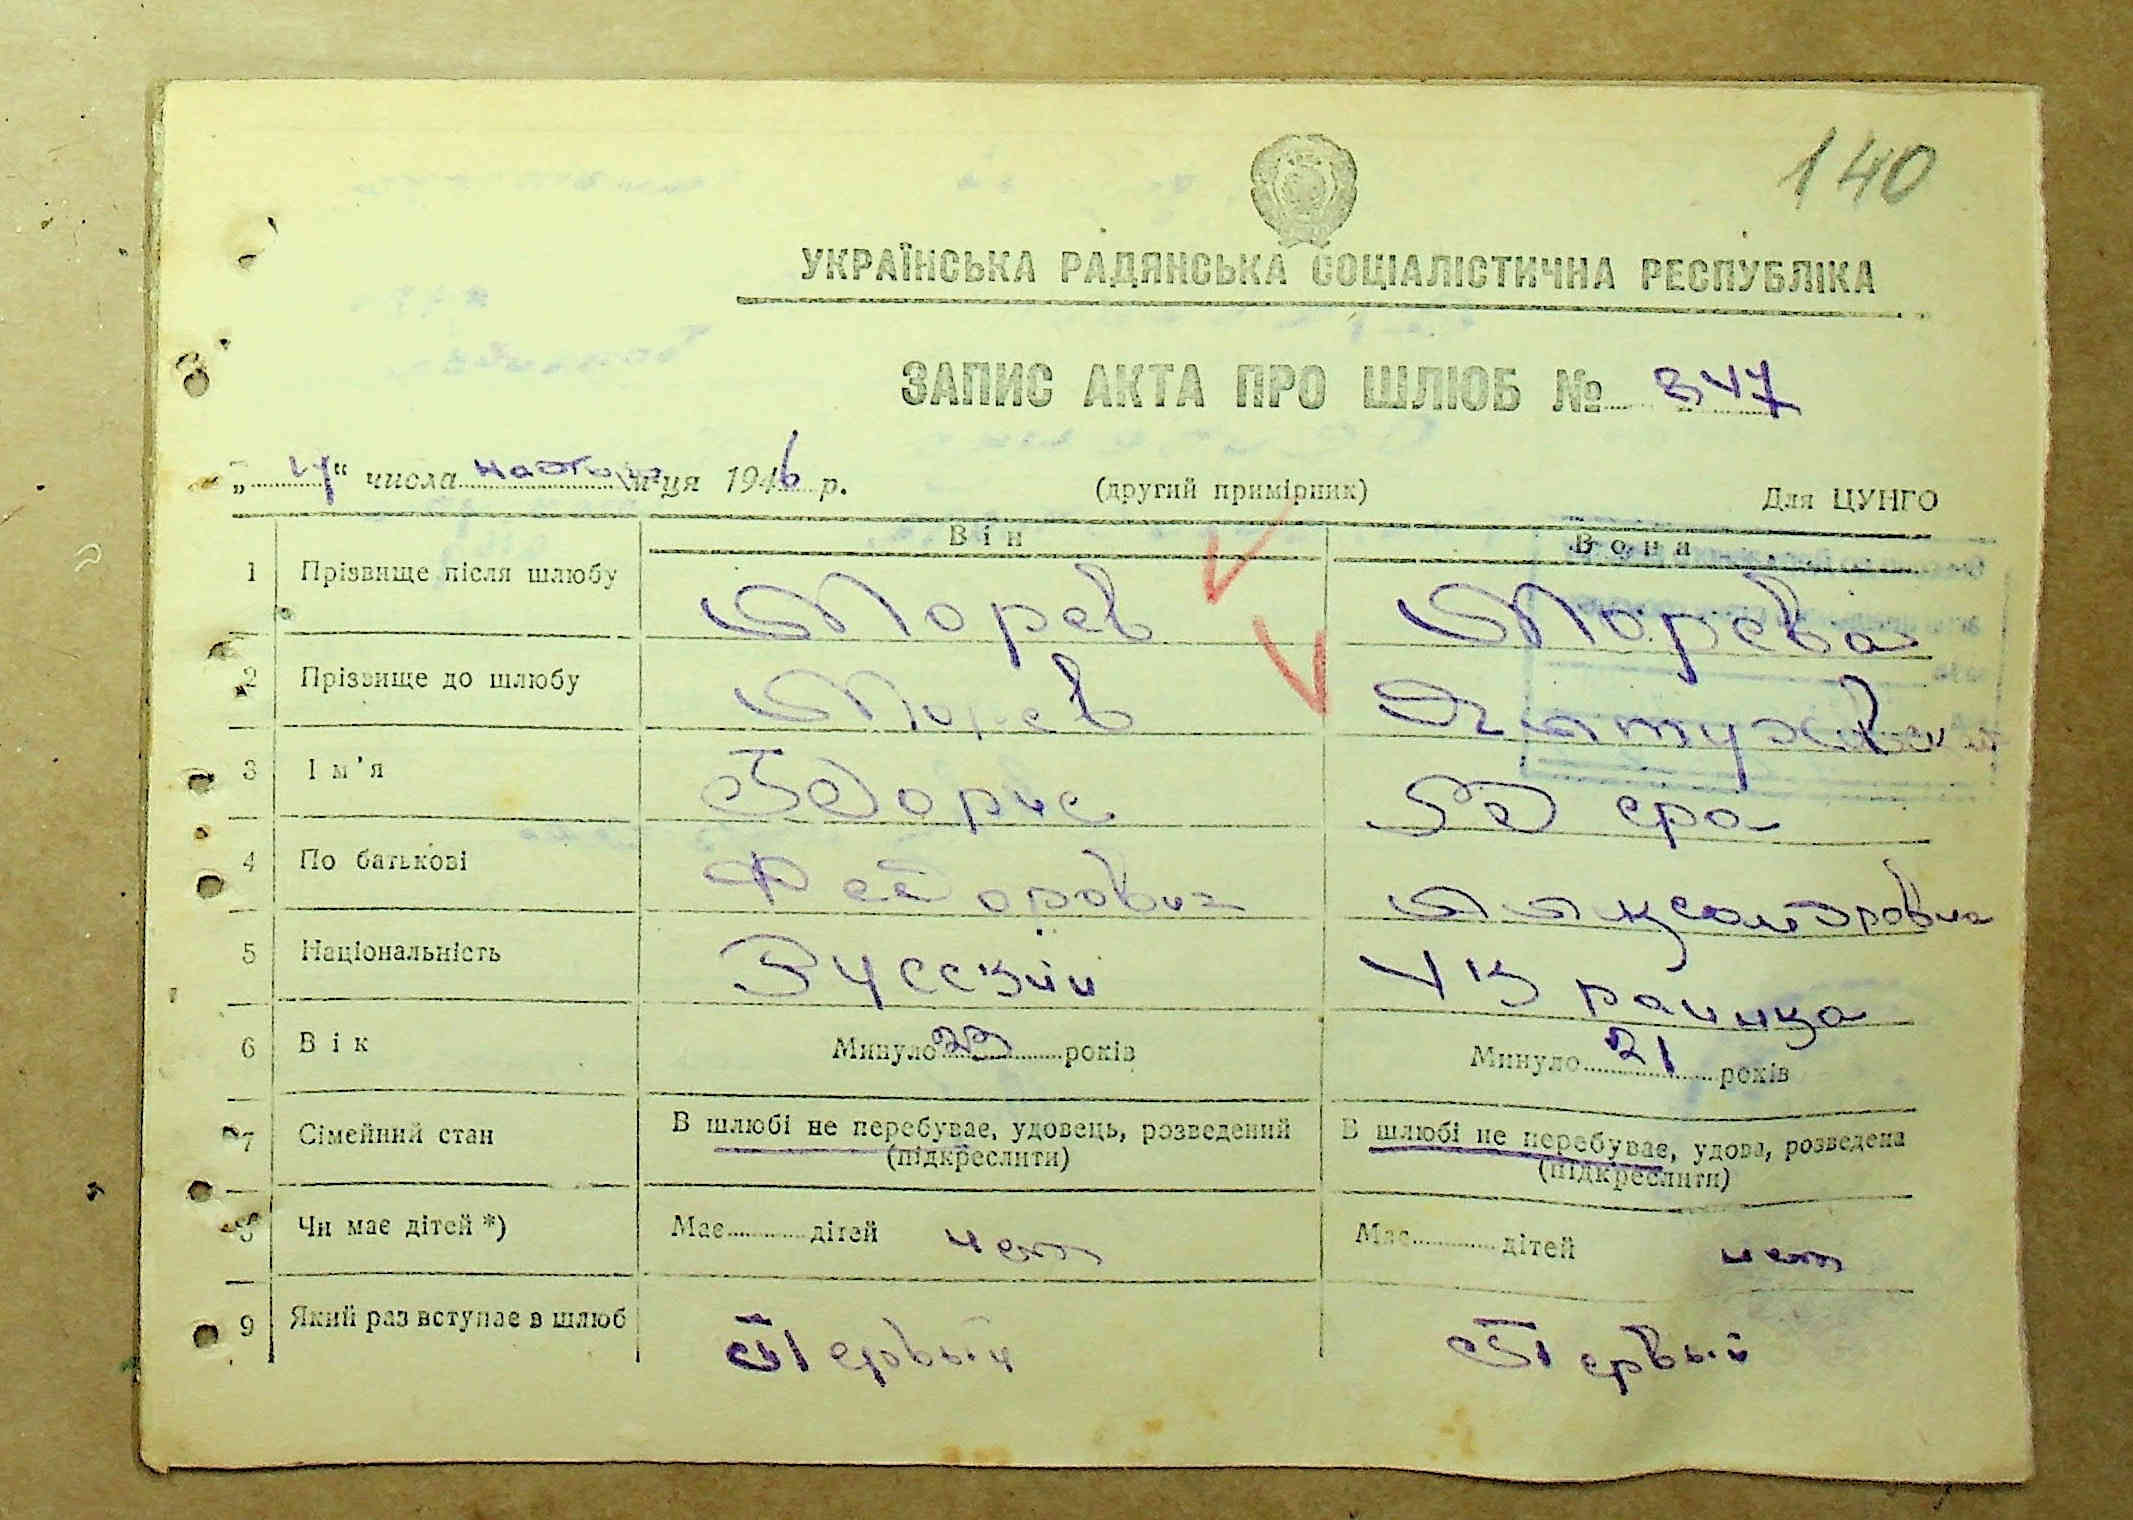 140
УКРАЇНСЬКА РАДЯНСЬКА СОЦІАЛІСТИЧНА РЕСПУБЛІКА
ЗАПИС АКТА ПРО ШЛЮБ № 347
„14“ числа м-ця 1946 р. (другий примірник) Для ЦУНГО
Він Вона
1 Прізвище після шлюбу Морев Морева
2 Прізвище до шлюбу Морев
3 Ім'я Борис Вера
4 По батькові Федорович
5 Національність Русский Украинка
6 Вік Минуло 23 років Минуло 21 років
7 Сімейний стан В шлюбі не перебуває, удовець, розведений В шлюбі не перебуває, удова, розведена
(підкреслити) (підкреслити)
8 Чи має дітей *) Має дітей нет Має дітей нет
9 Який раз вступає в шлюб Первый Первый